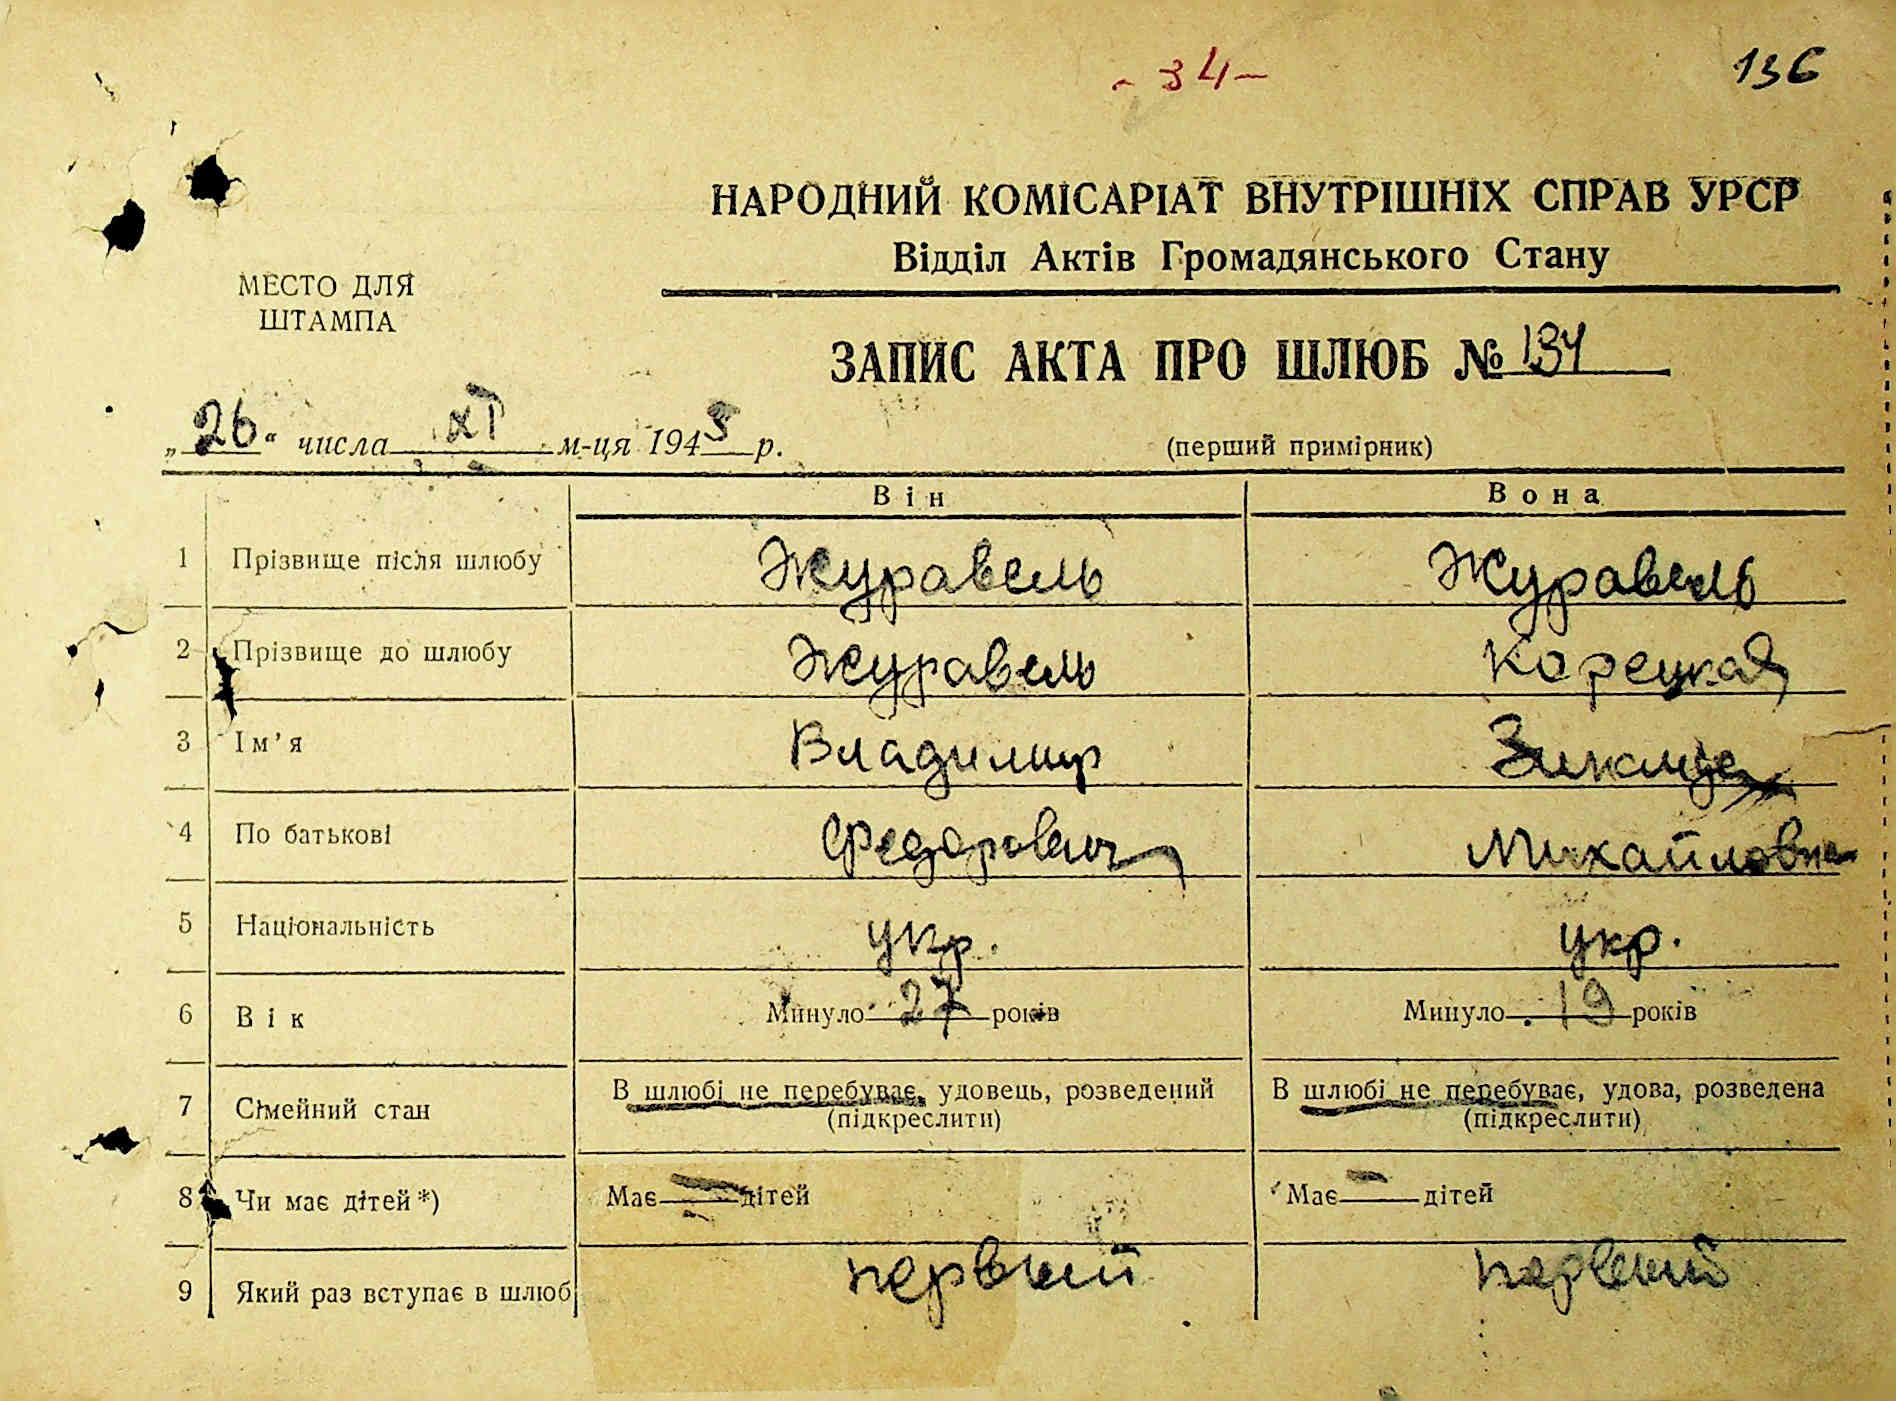 - 34 -
136
НАРОДНИЙ КОМІСАРІАТ ВНУТРІШНІХ СПРАВ УРСР
Відділ Актів Громадянського Стану
МЕСТО ДЛЯ
ШТАМПА
ЗАПИС АКТА ПРО ШЛЮБ № 134
„26“ числа XI м-ця 1945 р.
(перший примірник)
Він Вона
1 Прізвище після шлюбу Журавель Журавель
2 Прізвище до шлюбу Журавель Корецкая
3 Ім’я Владимир
4 По батькові Федорович Михайловна
5 Національність укр. укр.
6 Вік Минуло 27 років Минуло 19 років
7 Сімейний стан В шлюбі не перебуває, удовець, розведений В шлюбі не перебуває, удова, розведена
(підкреслити) (підкреслити)
8 Чи має дітей *) Має — дітей Має — дітей
9 Який раз вступає в шлюб первый первый